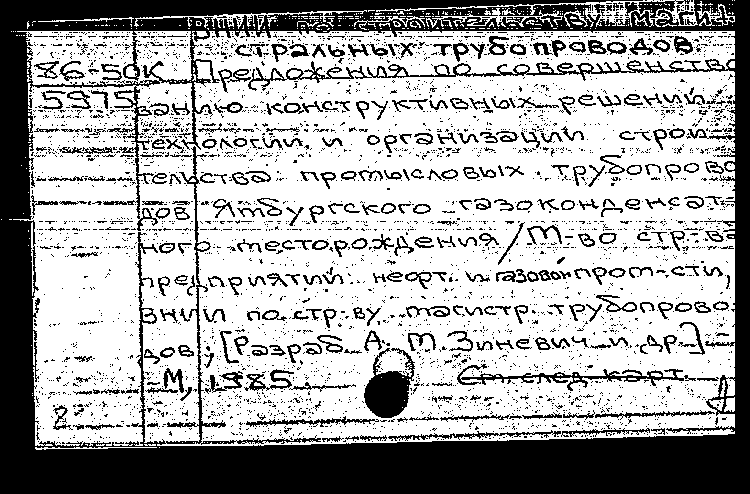 ВНИИ по строительству маги-
стральных трубопроводов.
86-50К Предложения по совершенство
5975 ванию конструктивных решений
технологии и организации строи-
тельства промысловых трубопрово
дов Ямбургского газоконденсат-
ного месторождения / М-во стр-ва
предприятий нефт. и газовой пром-сти,
ВНИИ по стр-ву магистр. трубопрово-
дов; [Разраб. А. М. Зиневич и др.] -
- М, 1985.
См. след. карт.